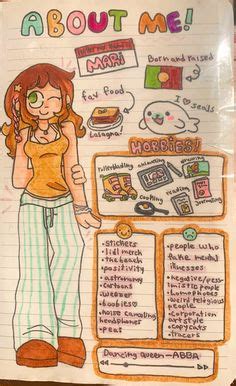 ABOUT ME!
MARI
Born and raised
fav food
Lasagna!
I ♡ seals
HOBBIES!
rollerblading
drawing
reading
cooking
journaling
• stickers
• lidl merch
• the beach
• positivity
• astronomy
• cartoons
• weezer
• boobies♡
• noise canceling
headphones
• peas
• people who
fake mental
illnesses
• negative/pess-
imistic people
• homophobes
• weird religious
people
• corporation
art style
• copycats
• tracers
Dancing Queen - ABBA